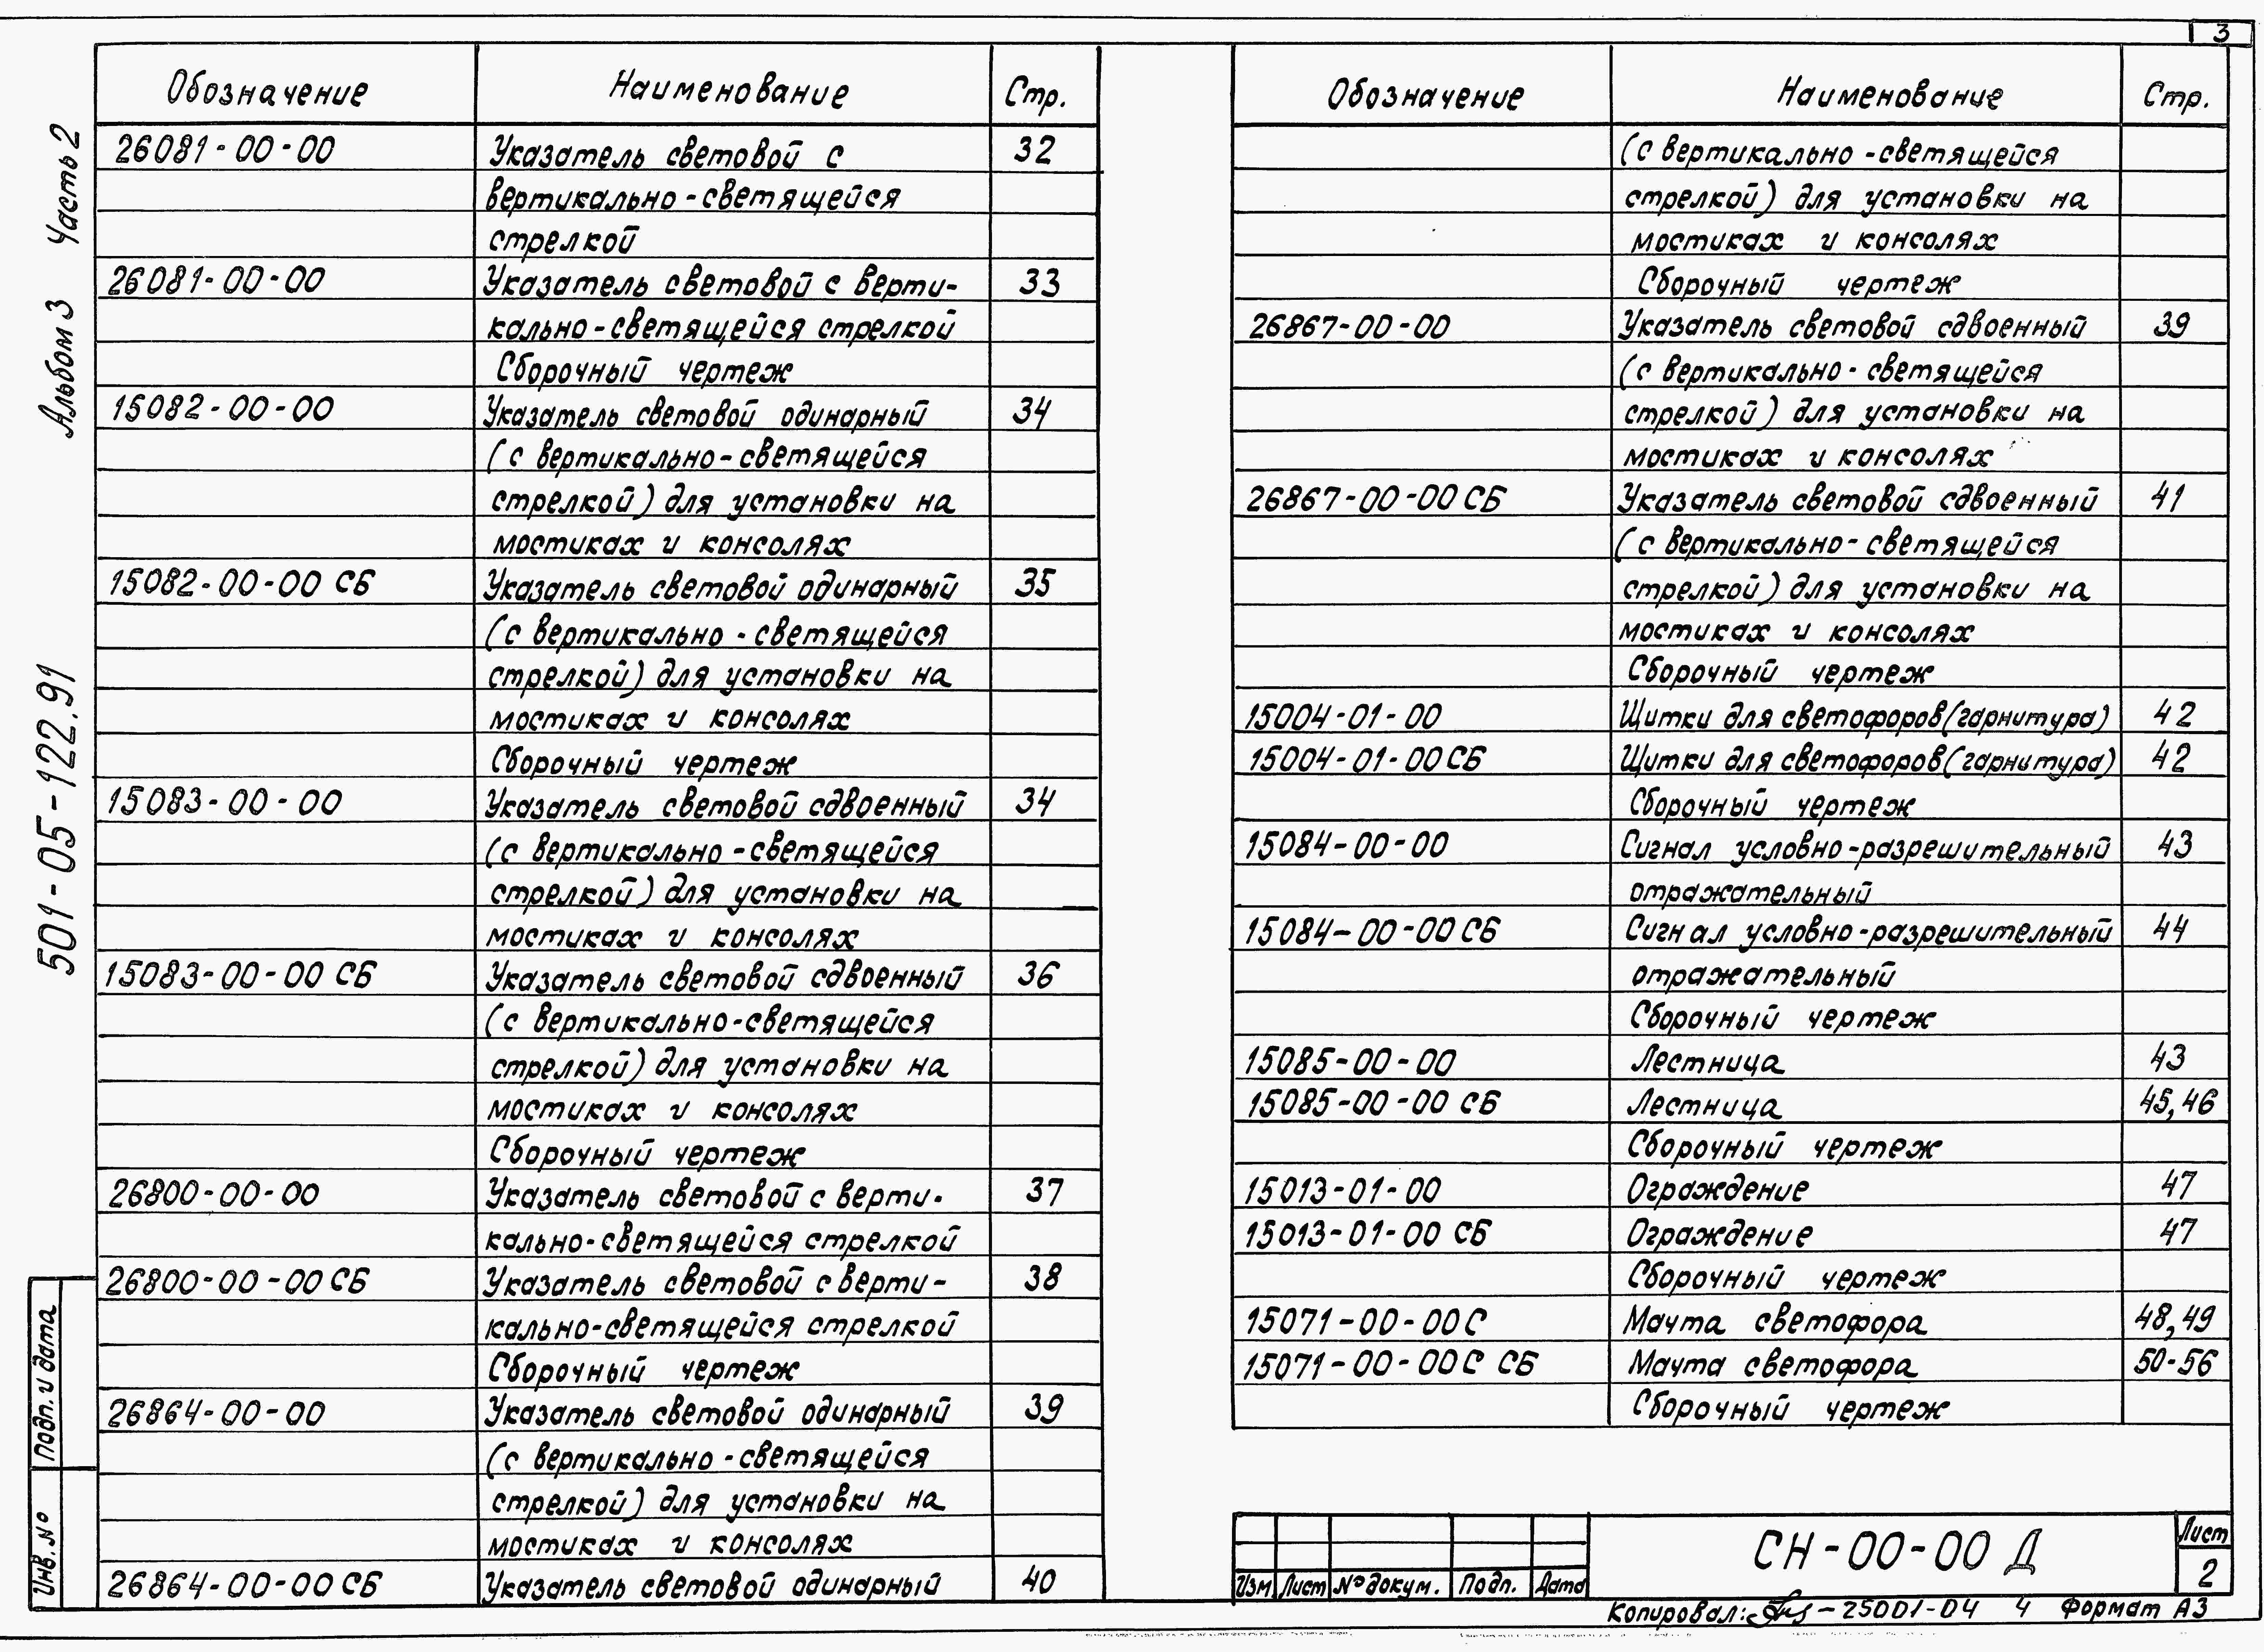 3
Обозначение Наименование Стр.
26081-00-00 Указатель световой с 32
вертикально-светящейся
стрелкой
26081-00-00 Указатель световой с верти- 33
кально-светящейся стрелкой
Сборочный чертеж
15082-00-00 Указатель световой одинарный 34
(с вертикально-светящейся
стрелкой) для установки на
мостиках и консолях
15082-00-00 СБ Указатель световой одинарный 35
(с вертикально-светящейся
стрелкой) для установки на
мостиках и консолях
Сборочный чертеж
15083-00-00 Указатель световой сдвоенный 34
(с вертикально-светящейся
стрелкой) для установки на
мостиках и консолях
15083-00-00 СБ Указатель световой сдвоенный 36
(с вертикально-светящейся
стрелкой) для установки на
мостиках и консолях
Сборочный чертеж
26800-00-00 Указатель световой с верти- 37
кально-светящейся стрелкой
26800-00-00 СБ Указатель световой с верти- 38
кально-светящейся стрелкой
Сборочный чертеж
26864-00-00 Указатель световой одинарный 39
(с вертикально-светящейся
стрелкой) для установки на
мостиках и консолях
26864-00-00 СБ Указатель световой одинарный 40
Обозначение Наименование Стр.
(с вертикально-светящейся
стрелкой) для установки на
мостиках и консолях
Сборочный чертеж
26867-00-00 Указатель световой сдвоенный 39
(с вертикально-светящейся
стрелкой) для установки на
мостиках и консолях
26867-00-00 СБ Указатель световой сдвоенный 41
(с вертикально-светящейся
стрелкой) для установки на
мостиках и консолях
Сборочный чертеж
15004-01-00 Щитки для светофоров (гарнитура) 42
15004-01-00 СБ Щитки для светофоров (гарнитура) 42
Сборочный чертеж
15084-00-00 Сигнал условно-разрешительный 43
отражательный
15084-00-00 СБ Сигнал условно-разрешительный 44
отражательный
Сборочный чертеж
15085-00-00 Лестница 43
15085-00-00 СБ Лестница 45,46
Сборочный чертеж
15013-01-00 Ограждение 47
15013-01-00 СБ Ограждение 47
Сборочный чертеж
15071-00-00С Мачта светофора 48,49
15071-00-00С СБ Мачта светофора 50-56
Сборочный чертеж
501-05-122.91 Альбом 3 Часть 2
Инв. № Подп. и дата
Изм Лист № докум. Подп. Дата
СН-00-00 Д
Лист
2
Копировал: -25001-04 4 Формат А3